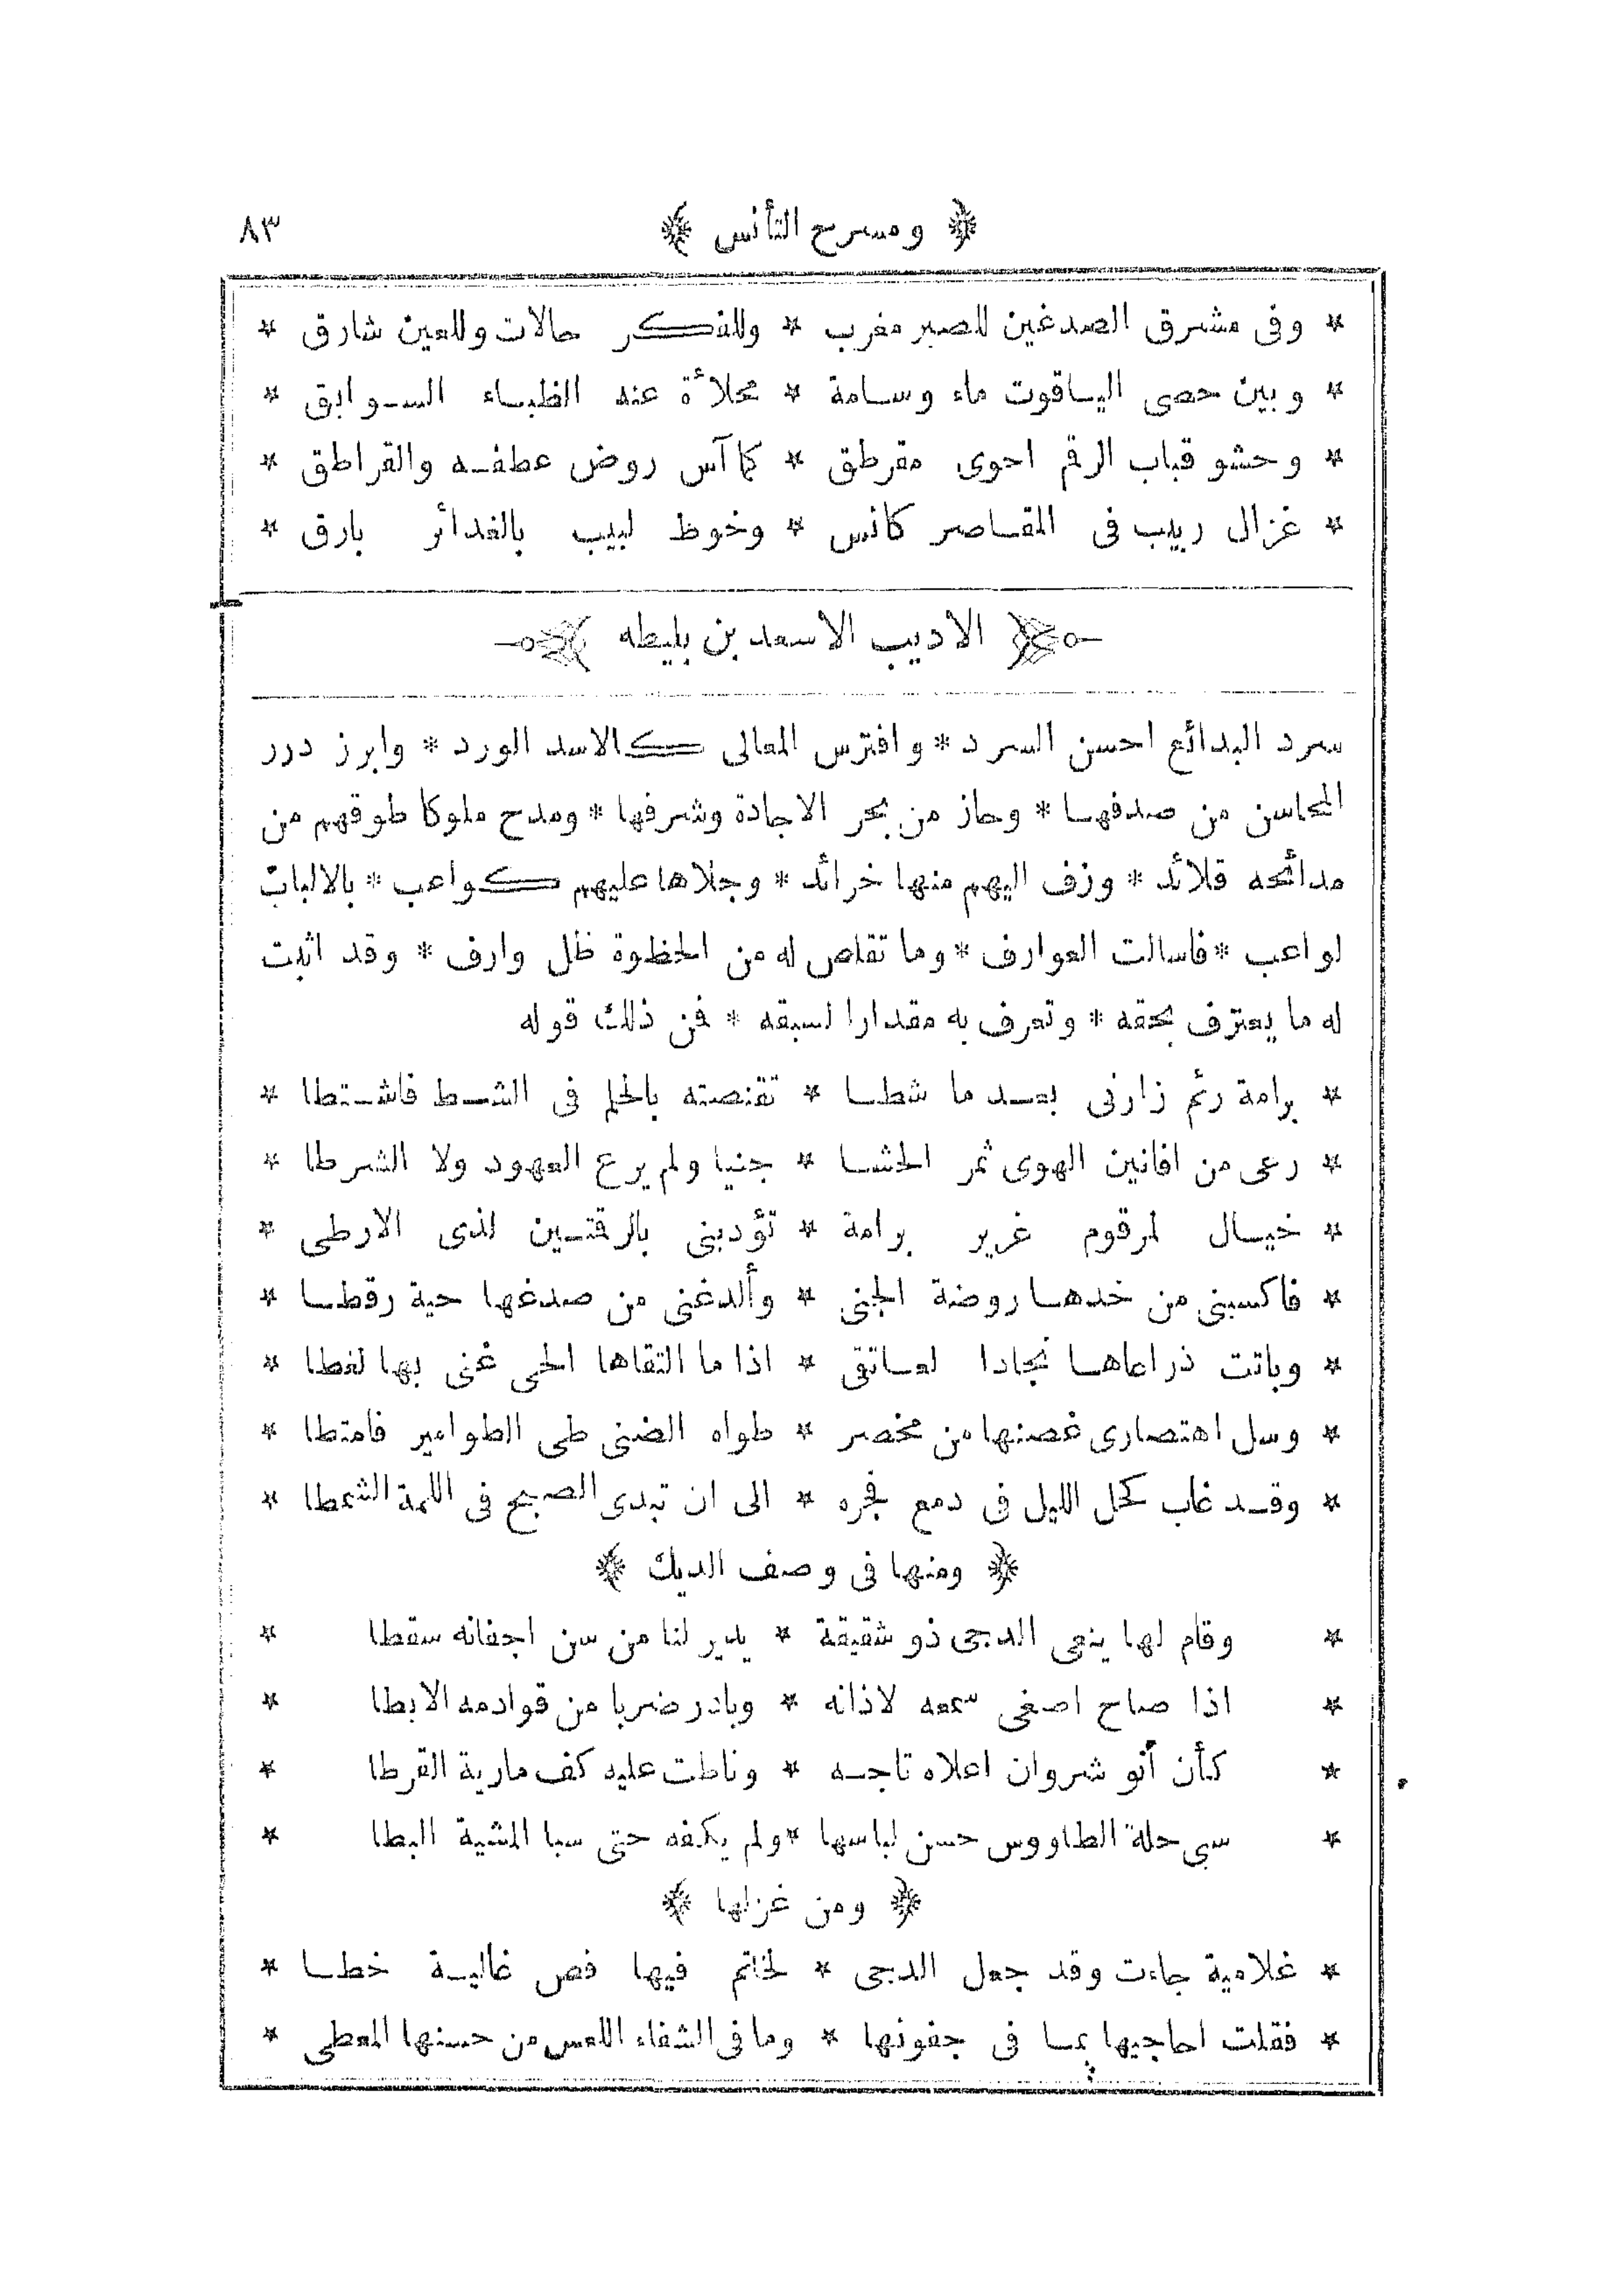 ﴿ ومسرح التأنس ﴾ ٨٣
* وفى مشرق الصدغين للصبر مغرب * وللفكر حالات وللعين شارق *
* وبين حصى الياقوت ماء وسامة * محلأة عنه الظباء السوابق *
* وحشو قباب الرقم احوى مقرطق * كما آس روض عطفه والقراطق *
* غزال ربيب فى المقاصر كانس * وخوط لبيب بالغدائر بارق *
الاديب الاسعد بن بليطه
سرد البدائع احسن السرد * وافترس المعالى كالاسد الورد * وابرز درر
المحاسن من صدفها * وحاز من بحر الاجادة وشرفها * ومدح ملوكا طوقهم من
مدائحه قلائد * وزف اليهم منها خرائد * وجلاها عليهم كواعب * بالالباب
لواعب * فاسالت العوارف * وما تقلص له من الحظوة ظل وارف * وقد اثبت
له ما يعترف بحقه * وتعرف به مقدارا لسبقه * فمن ذلك قوله
* برامة رئم زارنى بعد ما شطا * تقنصته بالحلم فى الشط فاشتطا *
* رعى من افانين الهوى ثمر الحشا * جنيا ولم يرع العهود ولا الشرطا *
* خيال لمرقوم غرير برامة * تؤدبنى بالرقتين لذى الارطى *
* فاكسبنى من خدها روضة الجنى * وألدغنى من صدغها حية رقطا *
* وباتت ذراعاها نجادا لعاتق * اذا ما التقاها الحى غنى بها لغطا *
* وسل اهتصارى غصنها من مخصر * طواه الضنى طى الطوامير فامتطا *
* وقد غاب كحل الليل فى دمع فجره * الى ان تبدى الصبح فى اللمة الشمطا *
﴿ ومنها فى وصف الديك ﴾
* وقام لها ينعى الدجى ذو شقيقة * يدير لنا من سن اجفانه سقطا *
* اذا صاح اصغى سمعه لاذانه * وبادر ضربا من قوادمه الابطا *
* كأن أنو شروان اعلاه تاجه * وناطت عليه كف مارية القرطا *
* سبى حلة الطاووس حسن لباسها * ولم يكفه حتى سبا المشية البطا *
﴿ ومن غزلها ﴾
* غلامية جاءت وقد جعل الدجى * لخاتم فيها فص غالية خطا *
* فقلت احاجيها بما فى جفونها * وما فى الشفاء اللعس من حسنها المعطى *